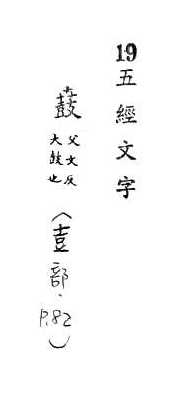 19五經文字
鼖
父文反
大鼓也
（壴部．P.82）